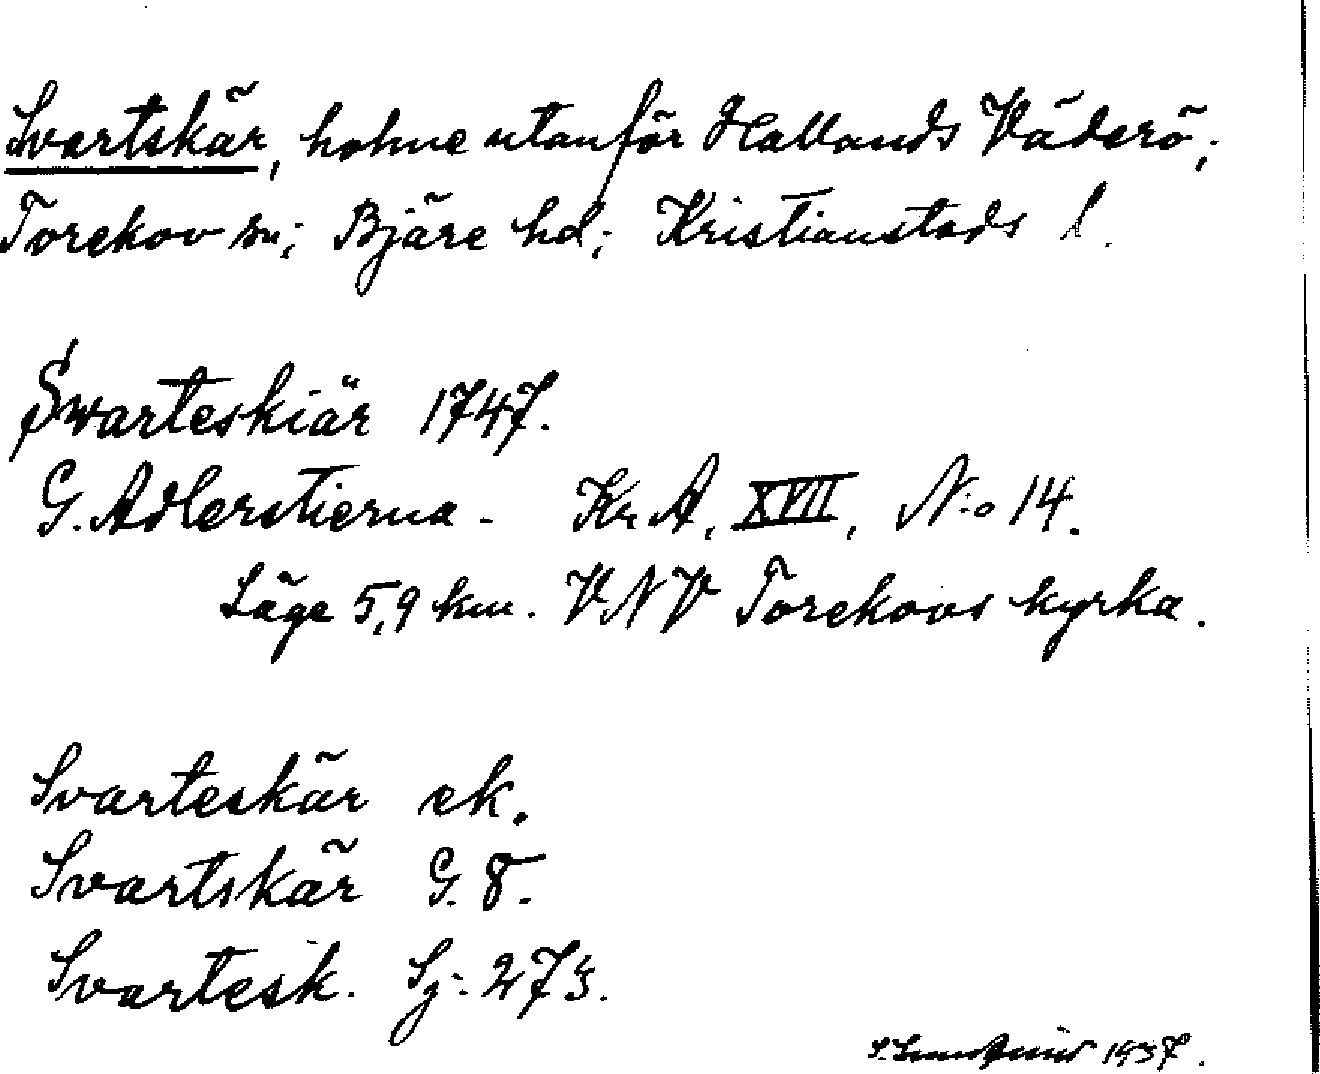 Svartskär, holme utanför Hallands Väderö;
Torekov sn; Bjäre hd; Kristianstads l.
Swarteskiär 1747.
G. Adlerstierna. Kr. A, XVII, N:o 14.
Läge 5,9 km. VNV Torekovs kyrka.
Svarteskär ek.
Svartskär G. 8.
Svartesk. Sj. 273.
1937.